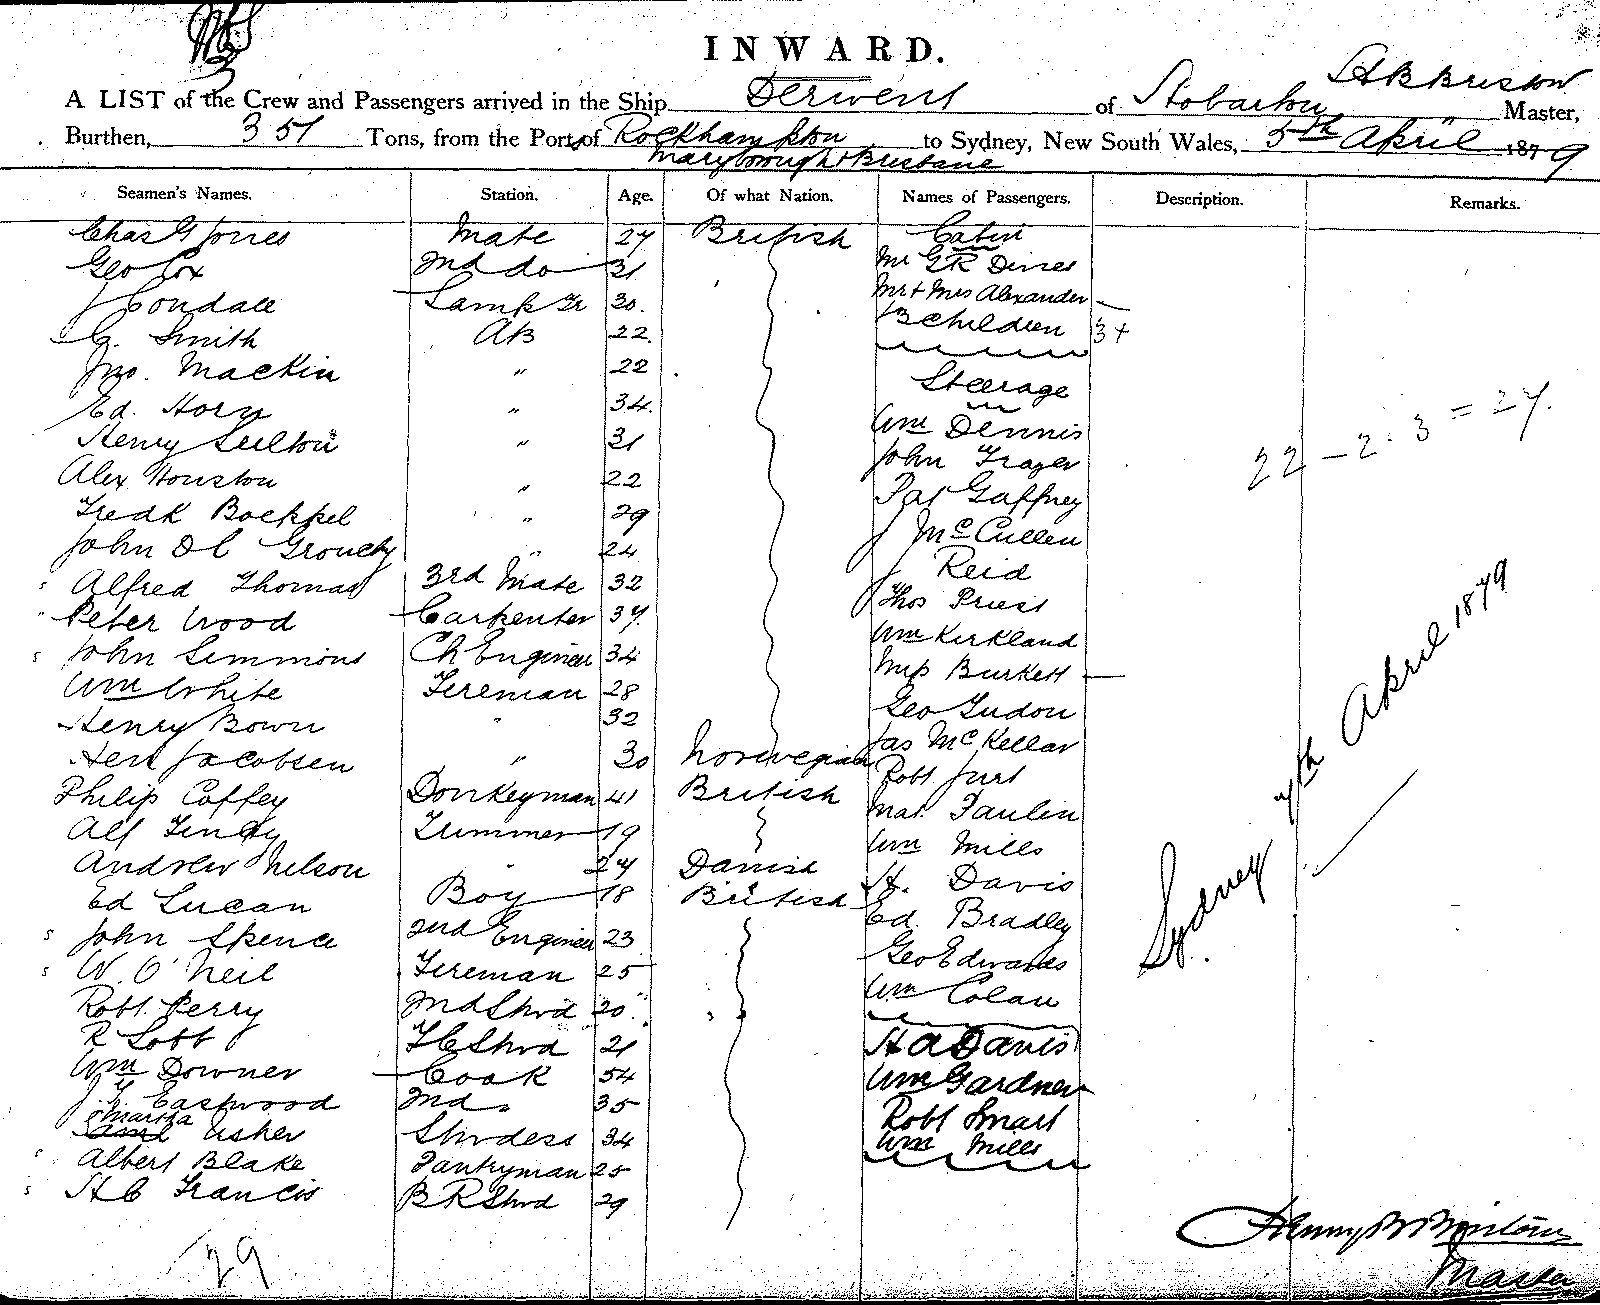 INWARD.
A LIST of the Crew and Passengers arrived in the Ship Derwent of Hobarton H B Bristow Master,
Burthen, 351 Tons, from the Port of Rockhampton to Sydney, New South Wales, 5th April 1879
Maryborough & Brisbane
Seamen's Names. Station. Age. Of what Nation. Names of Passengers. Description. Remarks.
Chas G Jones Mate 27 British Cabin
Geo Cox 2nd do 31 Mr G R Dines
J Condace Lamp Tr 30. Mr + Mrs Alexander
C. Smith AB 22. 3 children 3+
Jno. Mackin " 22 Steerage
Ed. Horn " 34. Wm Dennis
Henry " 31 John Frazer
Alex Houston " 22 Pat Gaffney
Fredk Boeppel " 29 J McCullen
John Grouchy " 24 J Reid
Alfred Thomas 3rd Mate 32 Thos Priest
Peter Wood Carpenter 37. Wm Kirkland
John Simmons Ch Engineer 34 Burkett
Wm White Fireman 28 Geo Gudon
Henry Bown " 32 Jas McKellar
Jacobsen " 30 Norwegian Robt Just
Philip Coffey Donkeyman 41 British Mat. Paulin
Alf Trimmer 19 Wm Mills
Andrew Nelson " 27 Danish H. Davis
Ed Lucan Boy 18 British Ed. Bradley
John Spence 2nd Engineer 23 Geo Edwards
W. O'Neil Fireman 25 Wm Colan
Robt. Perry 2nd Stwd 20
R Lobb F C Stwd 21 H A Davis
Wm Downer Cook 54 Wm Gardner
J. Y. Eastwood 2nd " 35 Robt Smart
Martha Usher Stwdess 34 Wm Mills
Albert Blake Pantryman 25
H C Francis B R Stwd 29
29
22 - 2. 3 = 27.
Sydney 7th April 1879
Henry B Bristow
Master